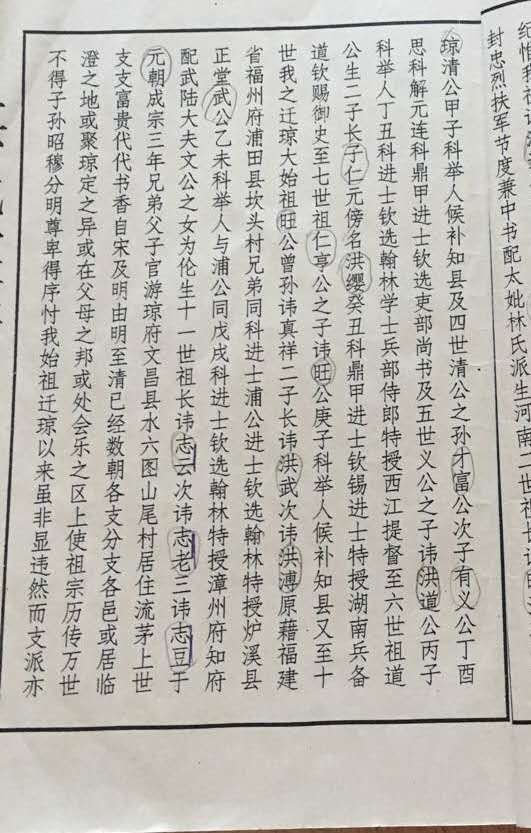 封忠烈扶军节度兼中书配太妣林氏派生河南二世祖
琼清公甲子科举人候补知县及四世清公之孙才富公次子有义公丁酉
思科解元连科鼎甲进士钦选吏部尚书及五世义公之子讳洪道公丙子
科举人丁丑科进士钦选翰林学士兵部侍郎特授西江提督至六世祖道
公生二子长子仁元傍名洪缨癸丑科鼎甲进士钦锡进士特授湖南兵备
道钦赐御史至七世祖仁亨公之子讳旺公庚子科举人候补知县又至十
世我之迁琼大始祖旺公曾孙讳真祥二子长讳洪武次讳洪溥原藉福建
省福州府浦田县坎头村兄弟同科进士浦公进士钦选翰林特授炉溪县
正堂武公乙未科举人与浦公同戊戌科进士钦选翰林特授漳州府知府
配武陆大夫文公之女为伦生十一世祖长讳志云次讳志老三讳志豆于
元朝成宗三年兄弟父子官游琼府文昌县水六图山尾村居住流茅上世
支支富贵代代书香自宋及明由明至清已经数朝各支分支各邑或居临
澄之地或聚琼定之异或在父母之邦或处会乐之区上使祖宗历传万世
不得子孙昭穆分明尊卑得序忖我始祖迁琼以来虽非显违然而支派亦